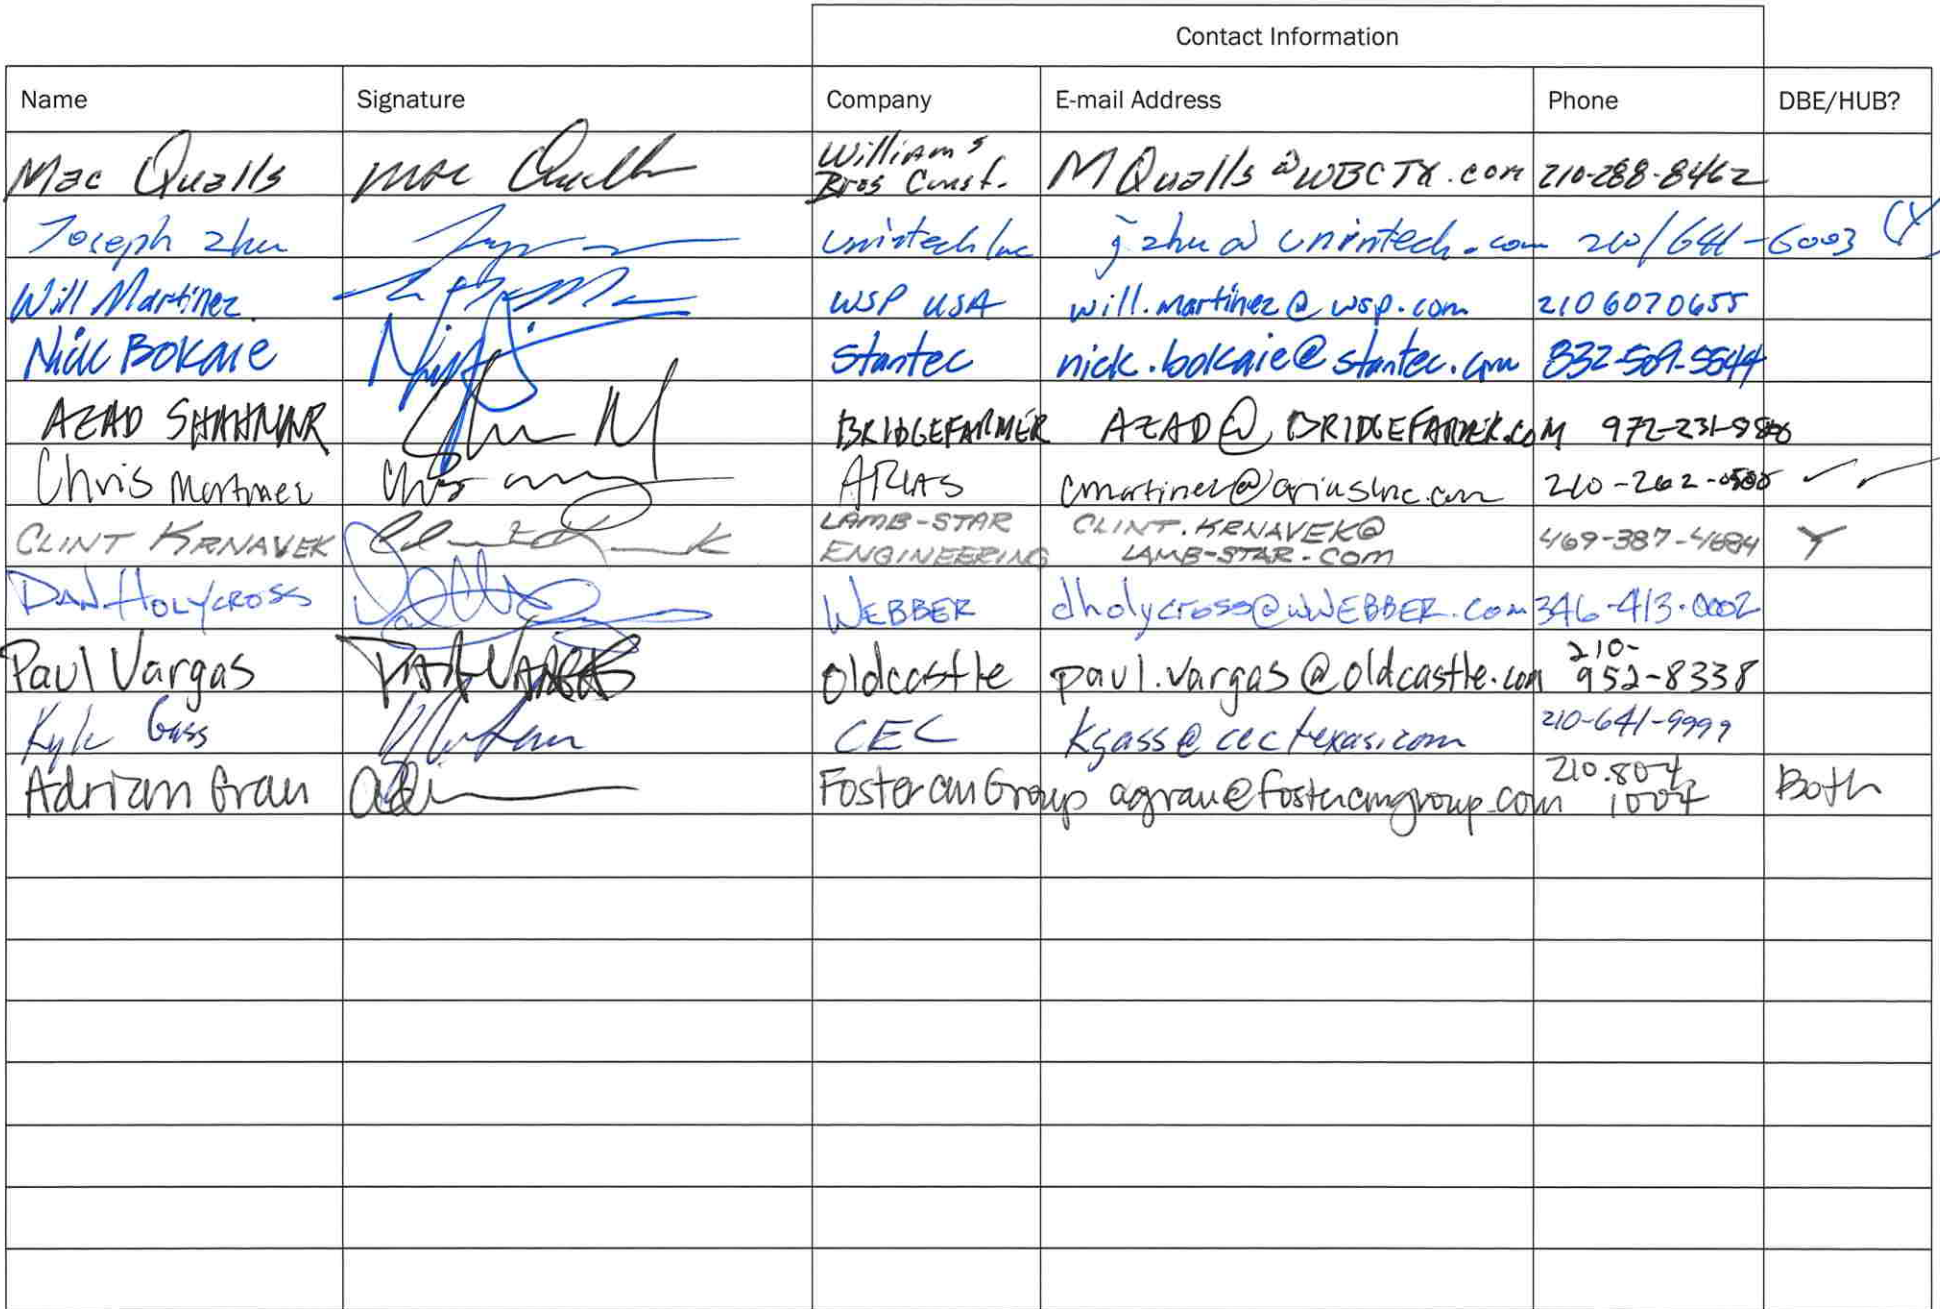 Contact Information
Name Signature Company E-mail Address Phone DBE/HUB?
Mac Qualls Mac Qualls Williams Bros Const. MQualls@WBCTX.com 210-288-8462
Joseph Zhu Unintech Inc jzhu@unintech.com 210/641-6003 (Y)
Will Martinez WSP USA will.martinez@wsp.com 2106070655
Nick Bokaie Stantec nick.bokaie@stantec.com 832-509-5544
AZAD BRIDGEFARMER AZAD@BRIDGEFARMER.COM 972-231-
Chris Martinez ARIAS cmartinez@ariasinc.com 210-262- ✓ ✓
CLINT KRNAVEK LAMB-STAR ENGINEERING CLINT.KRNAVEK@LAMB-STAR.COM 469-387-4684 Y
DAN HOLYCROSS WEBBER dholycross@wWEBBER.com 346-413-0002
Paul Vargas PAUL VARGAS Oldcastle paul.vargas@oldcastle.com 210-952-8338
Kyle Gass CEC kgass@cectexas.com 210-641-9999
Adrian Grau Foster CM Group agrau@fostercmgroup.com 210.804.1004 Both